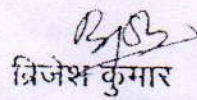 ब्रिजेश कुमार